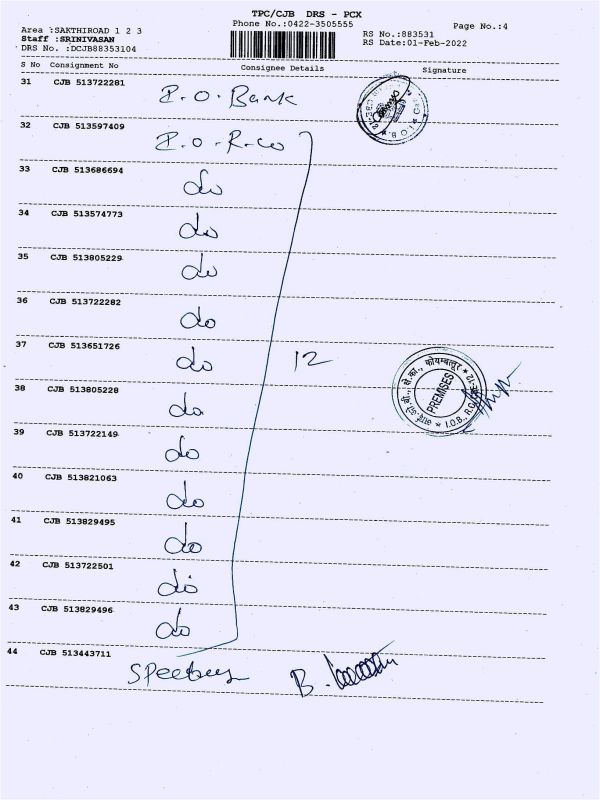 TPC/CJB DRS - PCX
Phone No.:0422-3505555
Page No.:4
Area :SAKTHIROAD 1 2 3
Staff :SRINIVASAN
DRS No. :DCJB88353104
RS No.:883531
RS Date:01-Feb-2022
S No Consignment No Consignee Details Signature
31 CJB 513722281 I.O.Bank
32 CJB 513597409 I.O.R.Co
33 CJB 513686694 do
34 CJB 513574773 do
35 CJB 513805229 do
36 CJB 513722282 do
37 CJB 513651726 do 12
PREMISES
38 CJB 513805228 do
39 CJB 513722149 do
40 CJB 513821063 do
41 CJB 513829495 do
42 CJB 513722501 do
43 CJB 513829496 do
44 CJB 513443711 B.